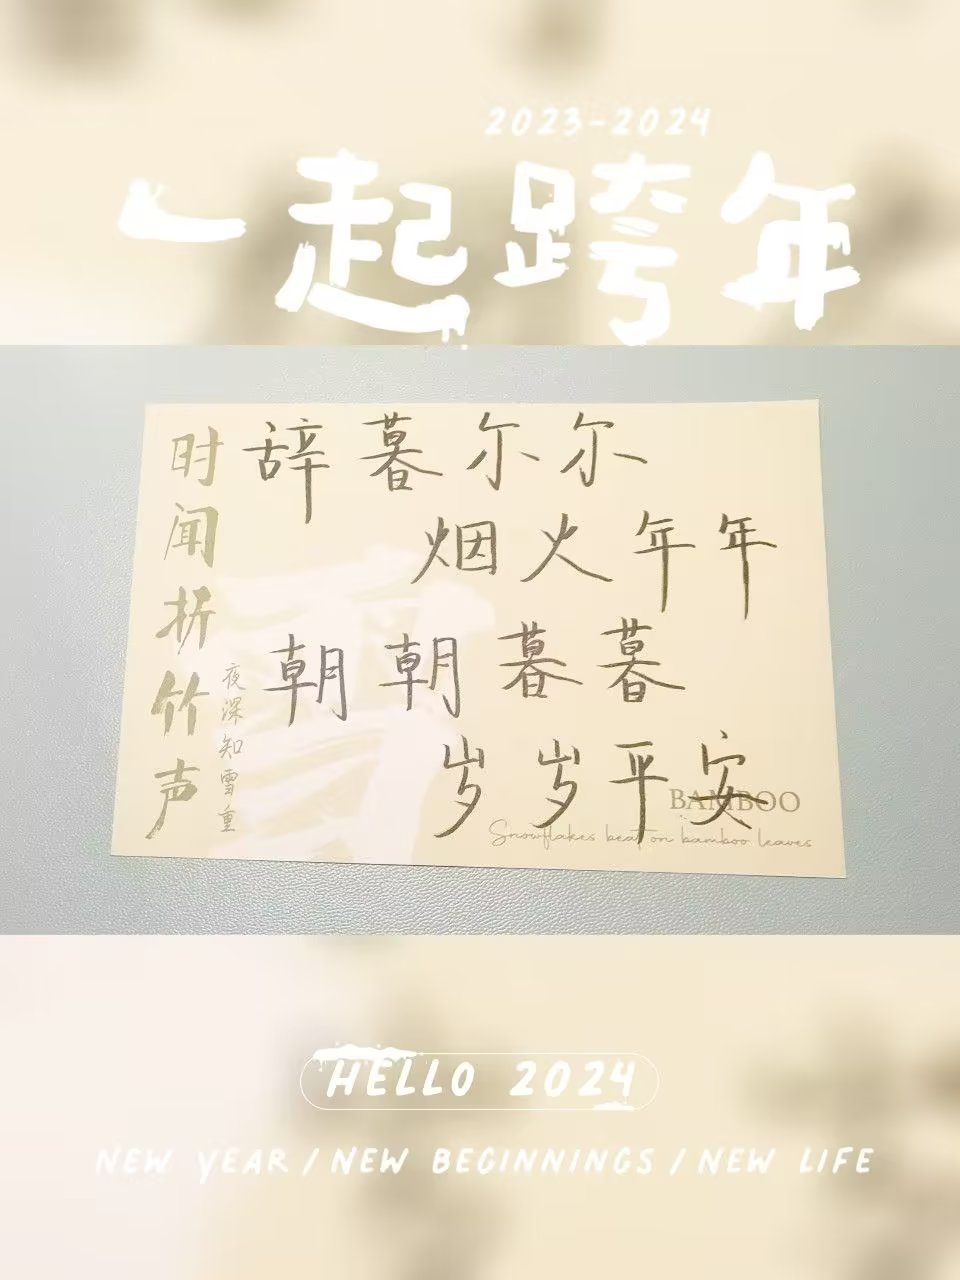 2023-2024
一起跨年
时闻折竹声
夜深知雪重
辞暮尔尔
烟火年年
朝朝暮暮
岁岁平安
BAMBOO
Snowflakes beat on bamboo leaves
HELLO 2024
NEW YEAR / NEW BEGINNINGS / NEW LIFE